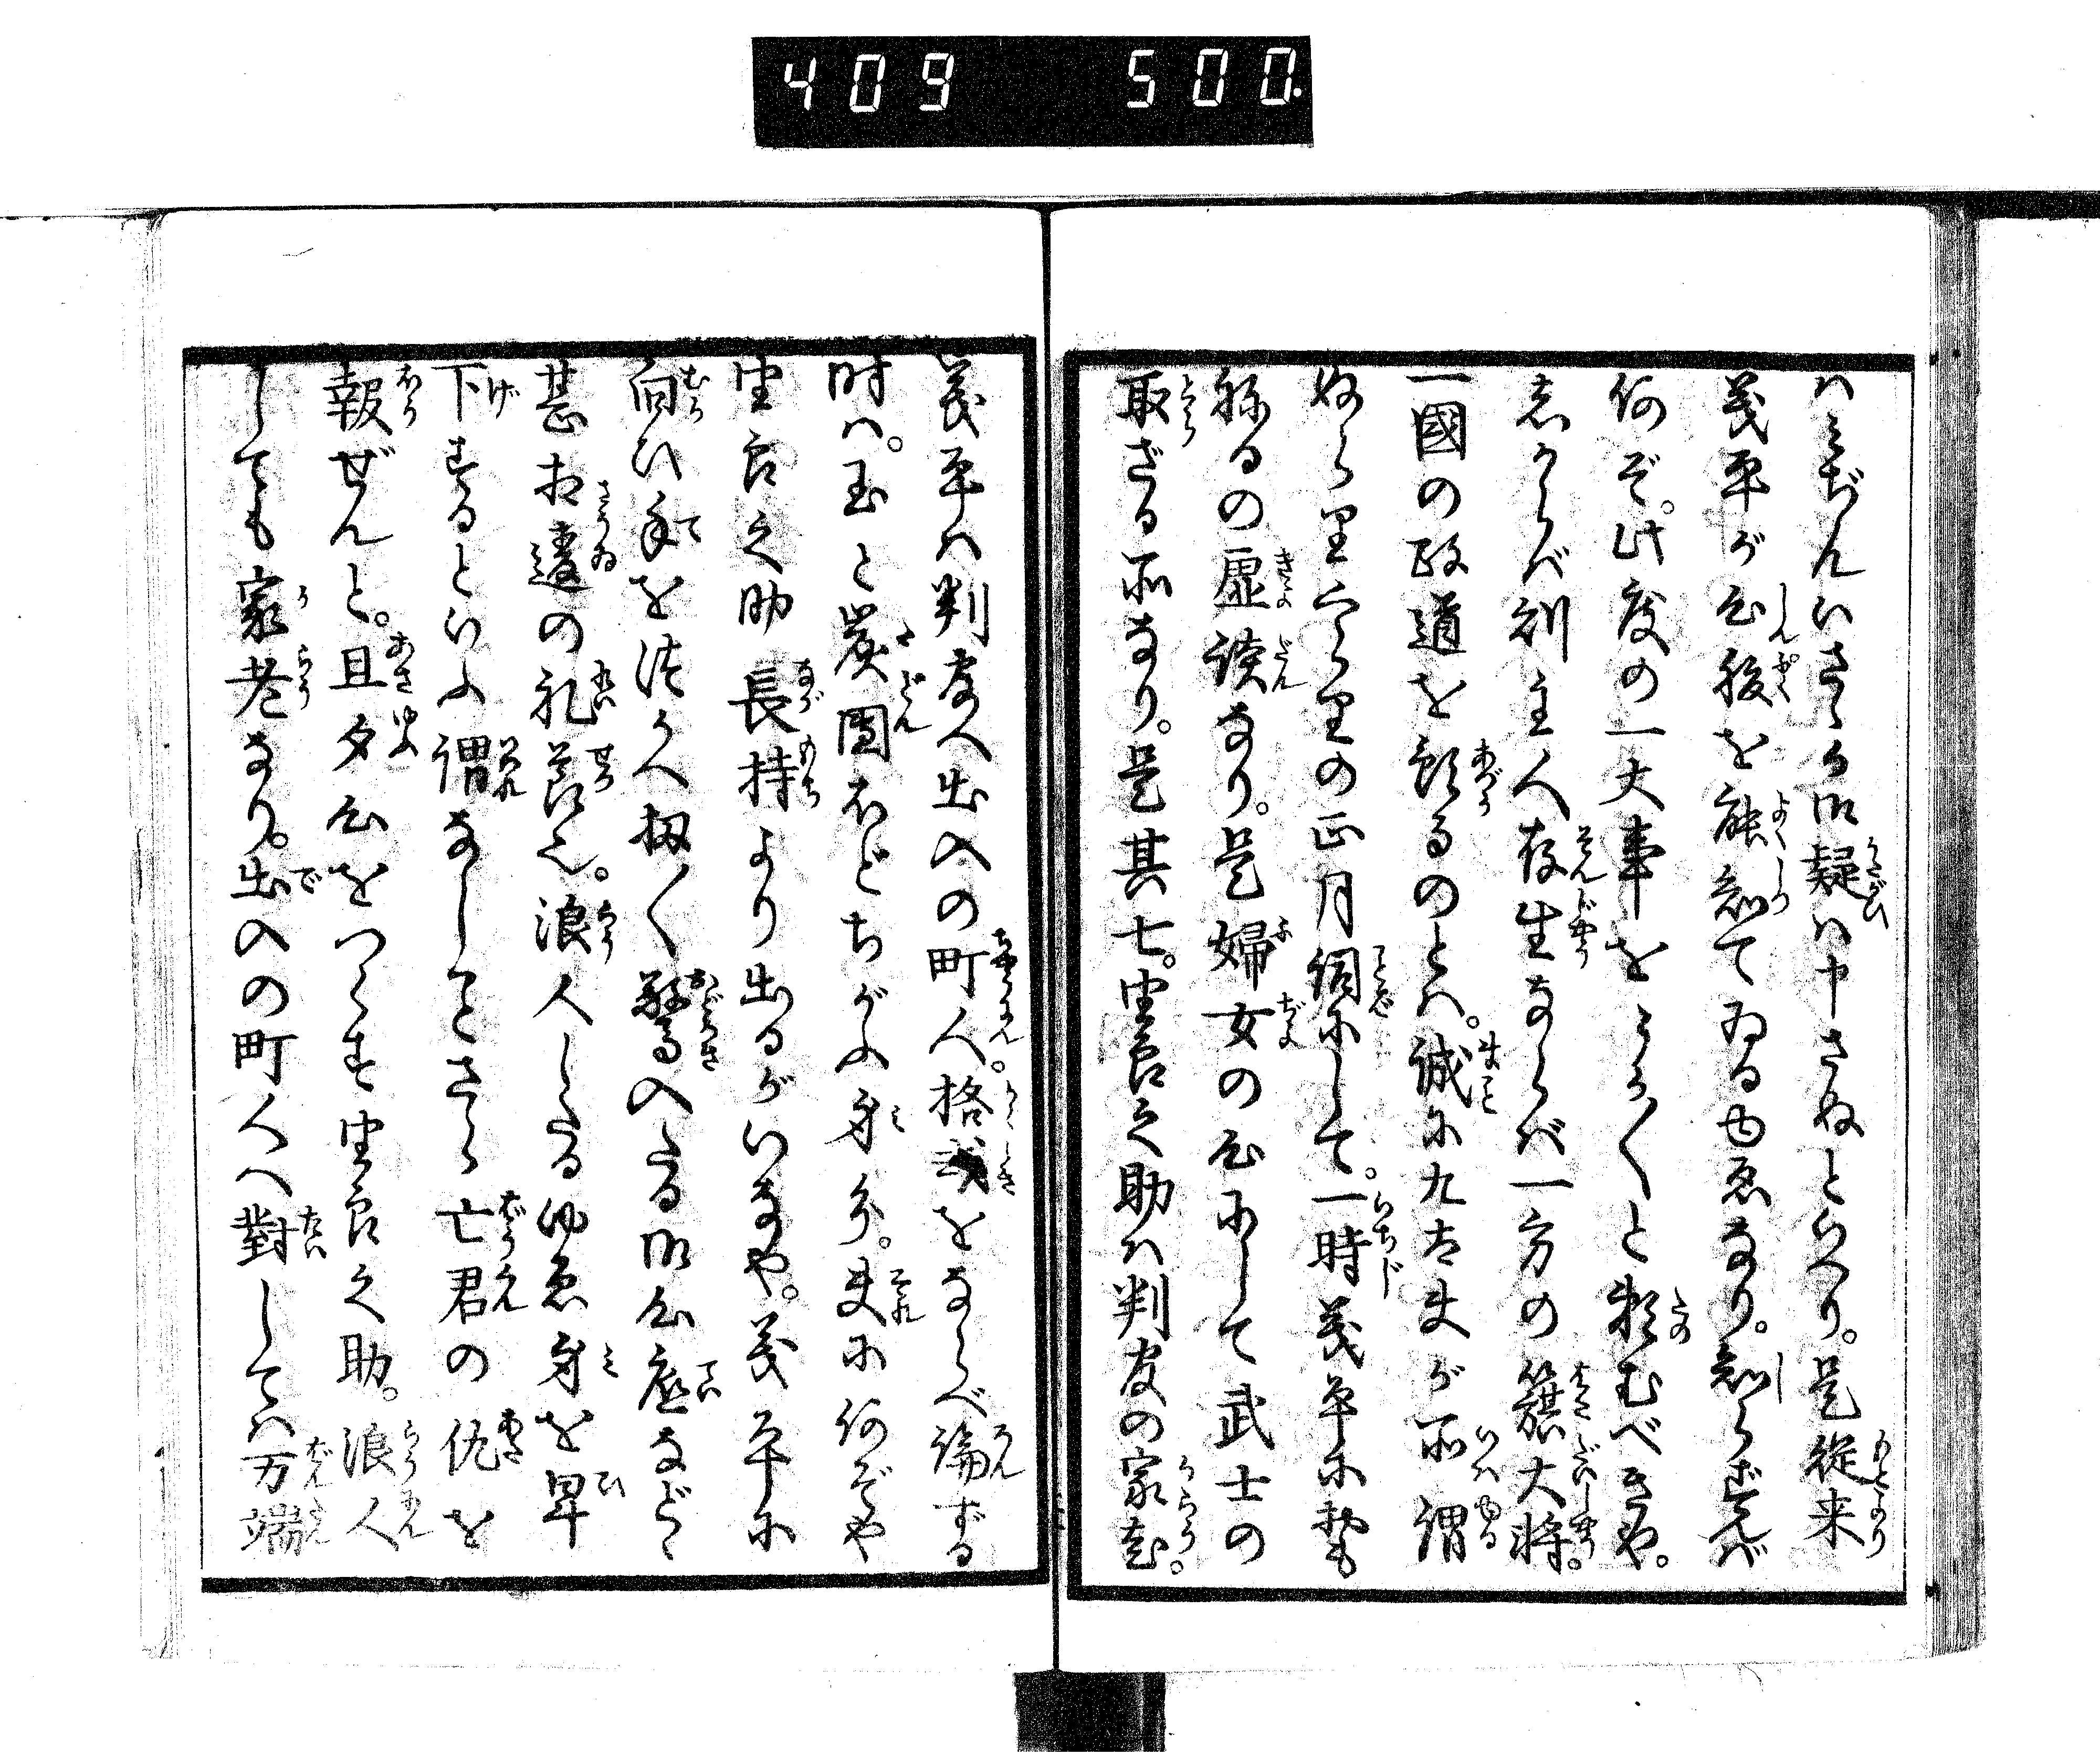 409 500.
ハみぢんいさゝか御疑ハ申さぬといへり。是従来
義平が心腹を能知てゐるゆゑなり。知らずんバ
何ぞ。此度の一大事をうか〳〵と頼むべきや。
志からバ刹主人存生ならバ一方の籏大将。
一國の政道を預るのとハ。誠に九太夫が所謂
ぬらり
の正月詞にして。一時義平に
の虚談なり。是婦女の心にして武士の
取ざる所なり。是其七。由良之助ハ判官の家老。
義平ハ判官へ出入の町人。格式をならべ論ずる
時ハ。玉と炭團ほどちがふ身分。夫に何ぞや
由良之助長持より出るがいなや。義平に
向ひ手をつかへ扨〳〵驚入たる御心底などゝ
甚相違の礼義也。浪人したるゆゑ身を卑
下するといふ謂なしことさら亡君の仇を
報ぜんと。且夕心をつくす由良之助。浪人
しても家老なり。出入の町人へ對してハ万端